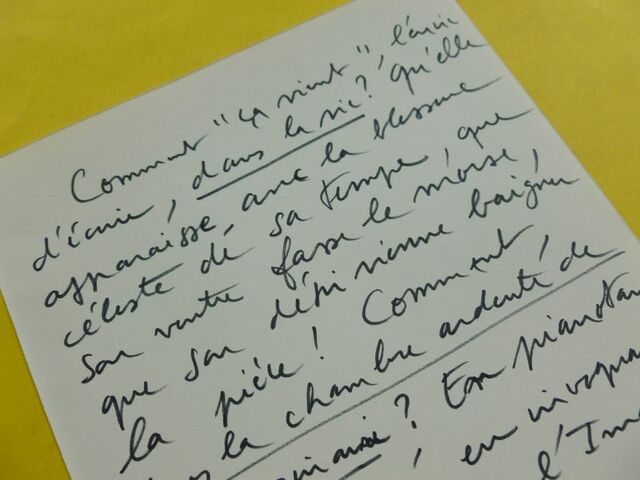 Comment "ça vient", l'envie
d'écrire, dans la vie? qu'elle
apparaisse, avec la blessure
céleste de sa tempe, que
son ventre fasse le morse,
que son défi vienne baigner
la pièce! Comment,
la chambre ardente de
? En pianotant
, en invoquant